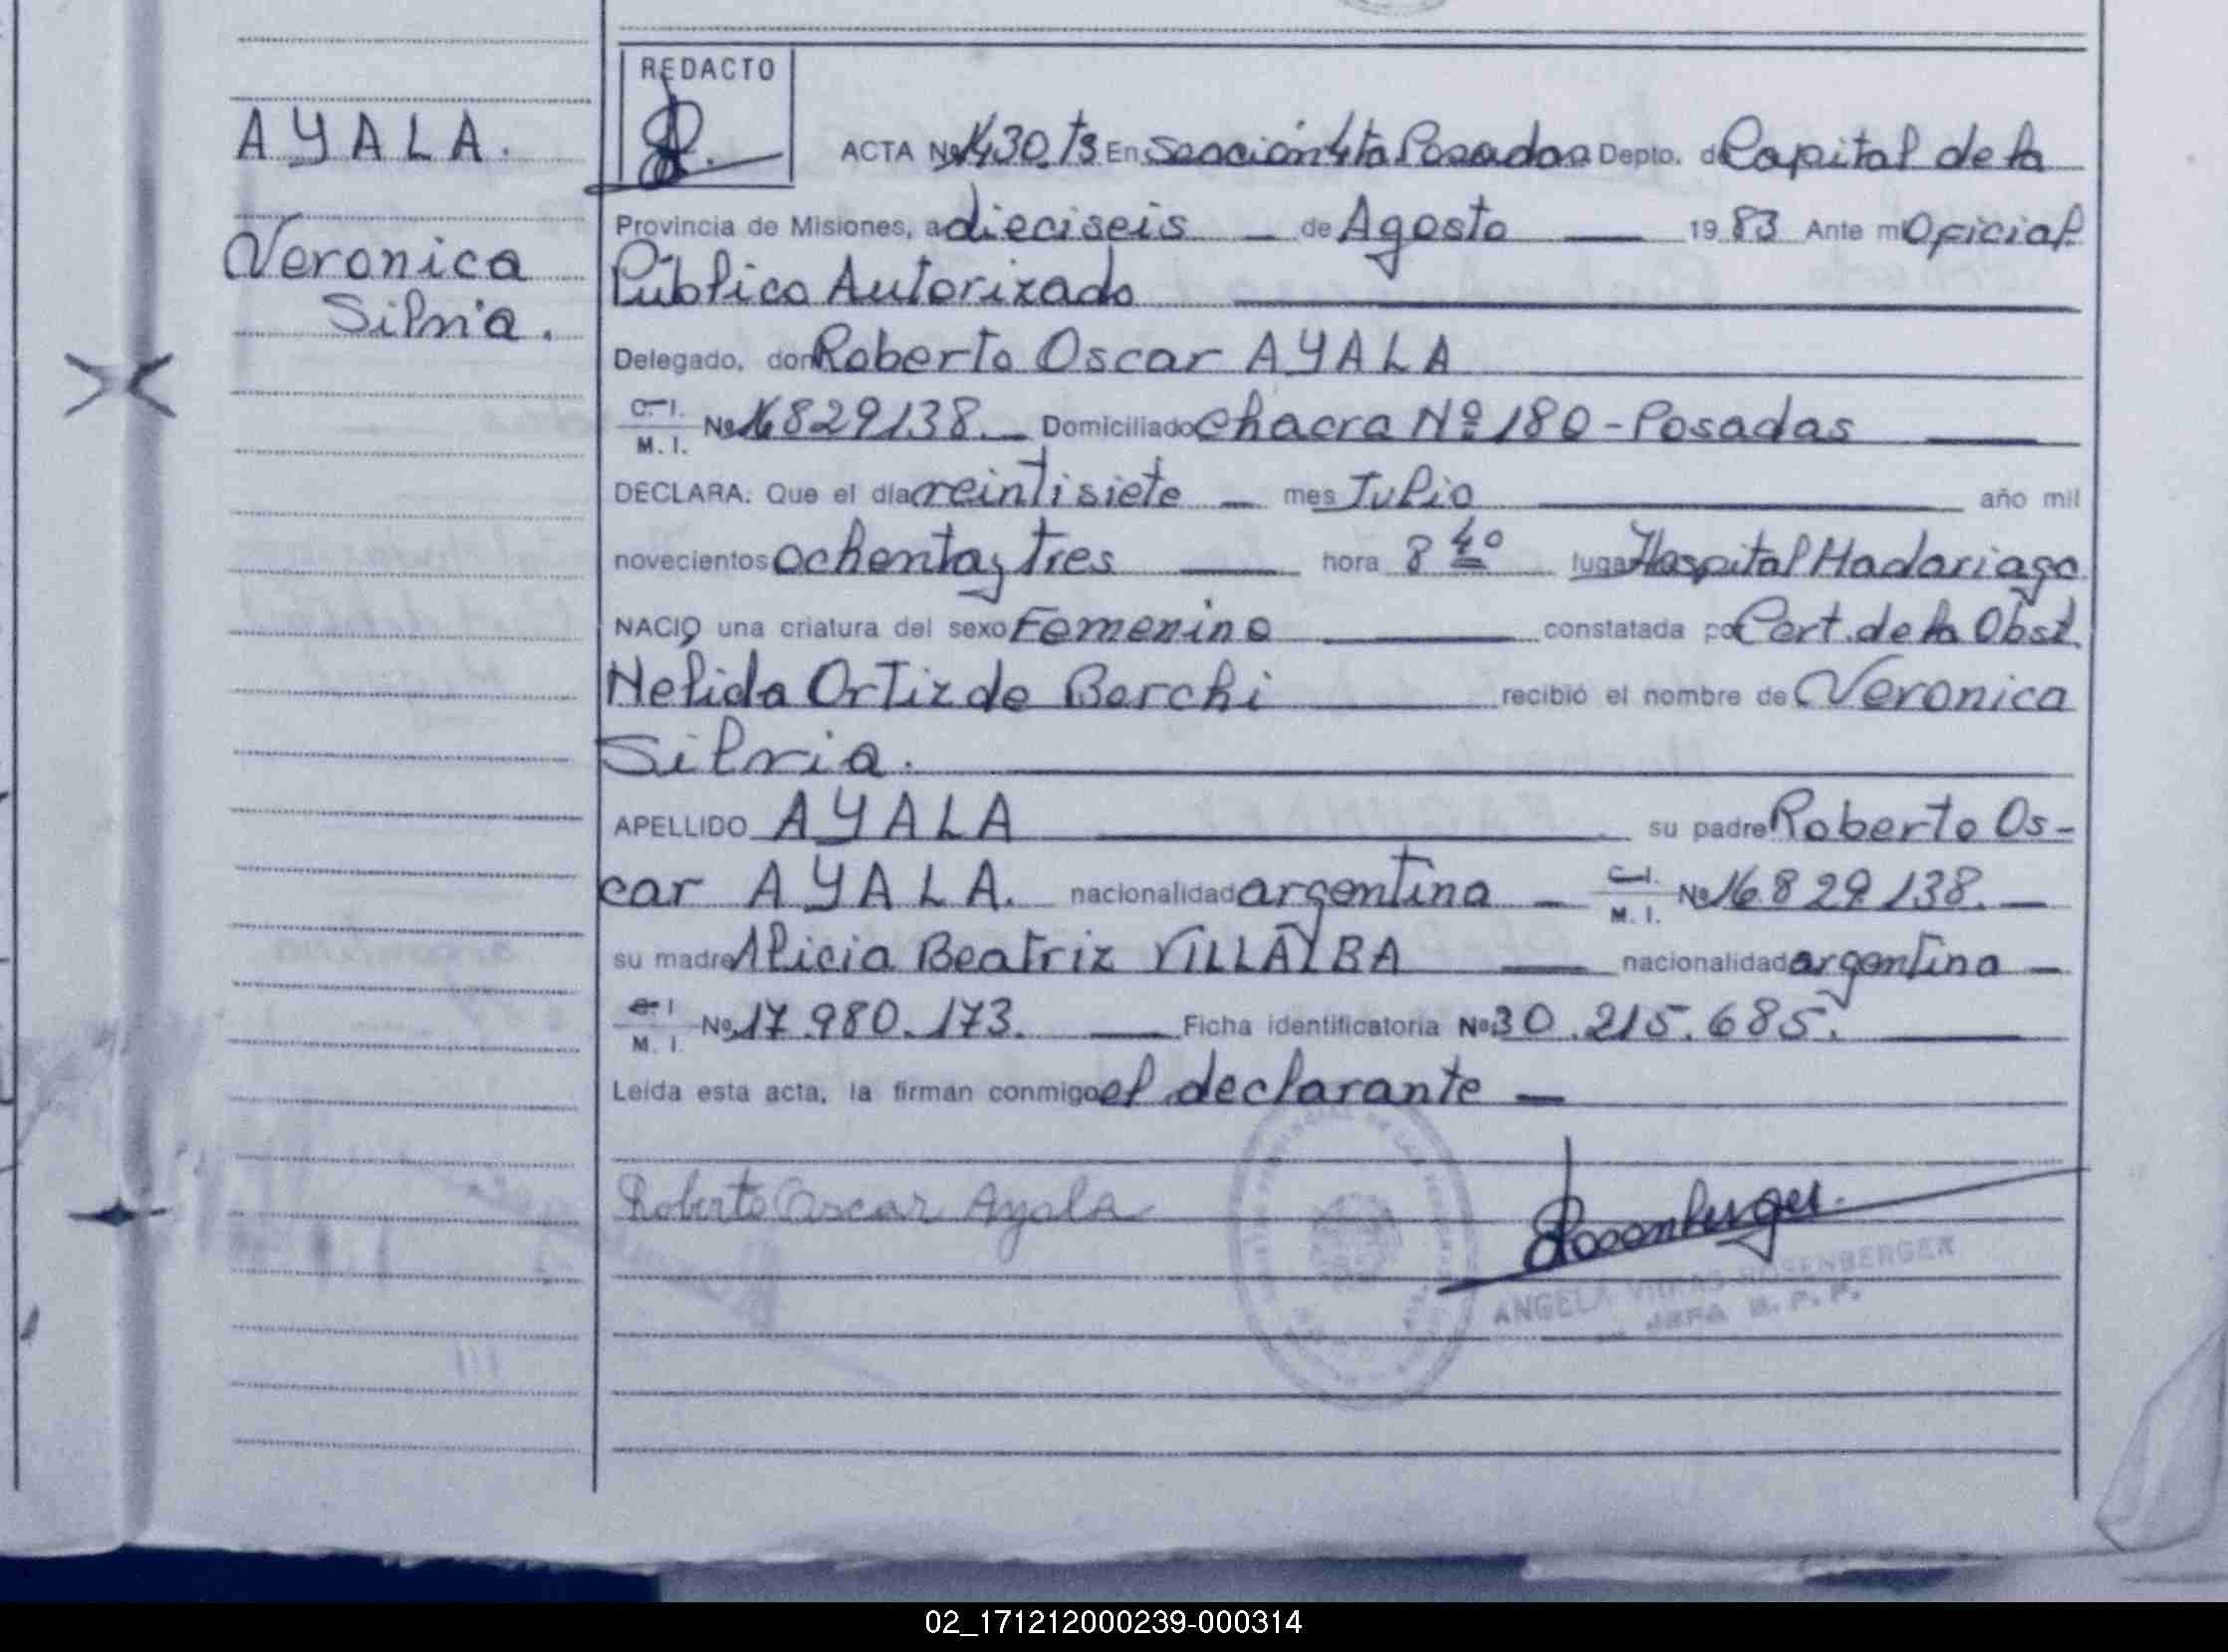 REDACTO
AYALA.
ACTA Nº 1430 ts En Sección 4ta Posadas Depto. de Capital de la
Provincia de Misiones, a dieciseis de Agosto 1983 Ante mi Oficial
Veronica
Público Autorizado
Silvia.
Delegado, don Roberto Oscar AYALA
C. I.
M. I. Nº 16829138. Domiciliado Chacra Nº 180 - Posadas
DECLARA: Que el día veintisiete mes Julio año mil
novecientos ochenta y tres hora 8 40 lugar Hospital Madariaga
NACIO una criatura del sexo Femenino constatada por Cert. de la Obst.
Nelida Ortiz de Berchi recibió el nombre de Veronica
Silvia.
APELLIDO AYALA su padre Roberto Os-
car AYALA. nacionalidad argentina C. I. M. I. Nº 16.829.138.
su madre Alicia Beatriz VILLALBA nacionalidad argentina
C. I. M. I. Nº 17.980.173. Ficha identificatoria Nº 30.215.685.
Leída esta acta, la firman conmigo el declarante
Roberto Oscar Ayala
Rosenberger
ANGELA ROSENBERGER
JEFA B. P. P.
02_171212000239-000314